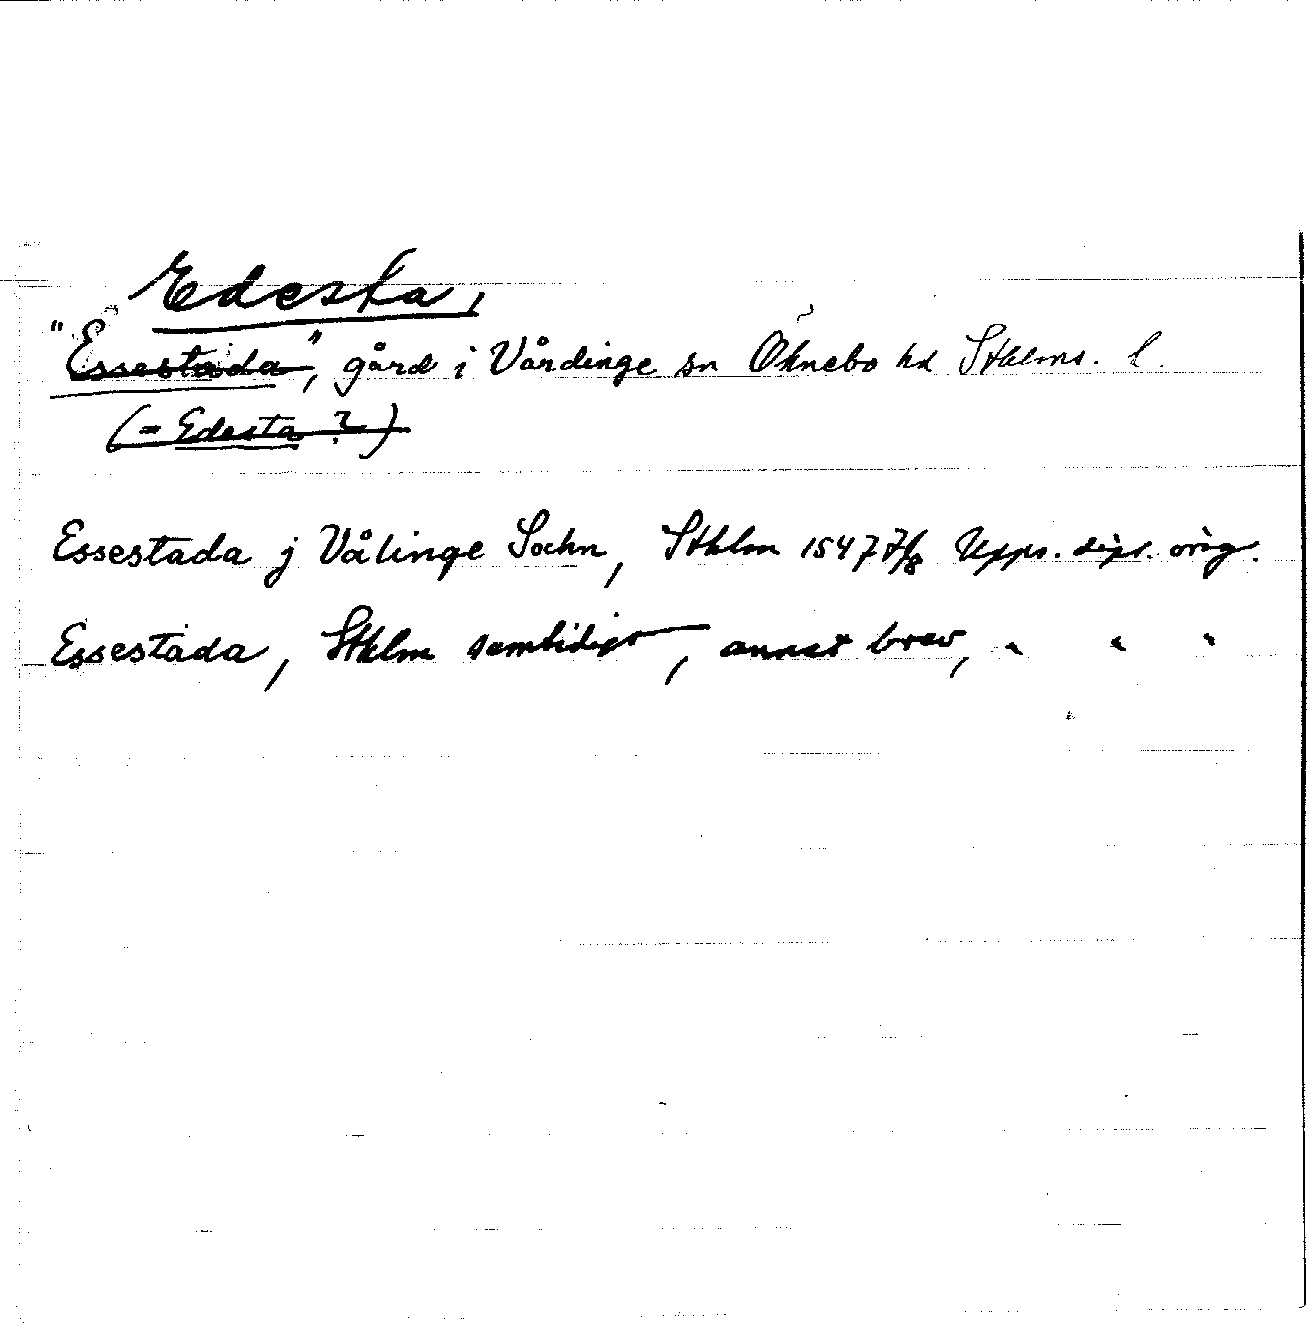 Edesta,
"Essestada", gård i Vårdinge sn Öknebo hd Sthlms. l.
(= Edesta ?)
Essestada j Vålinge Sochn, Sthlm 1547 7/8 Upps. dipl. orig.
Essestada, Sthlm samtidigt, annat brev, " " "